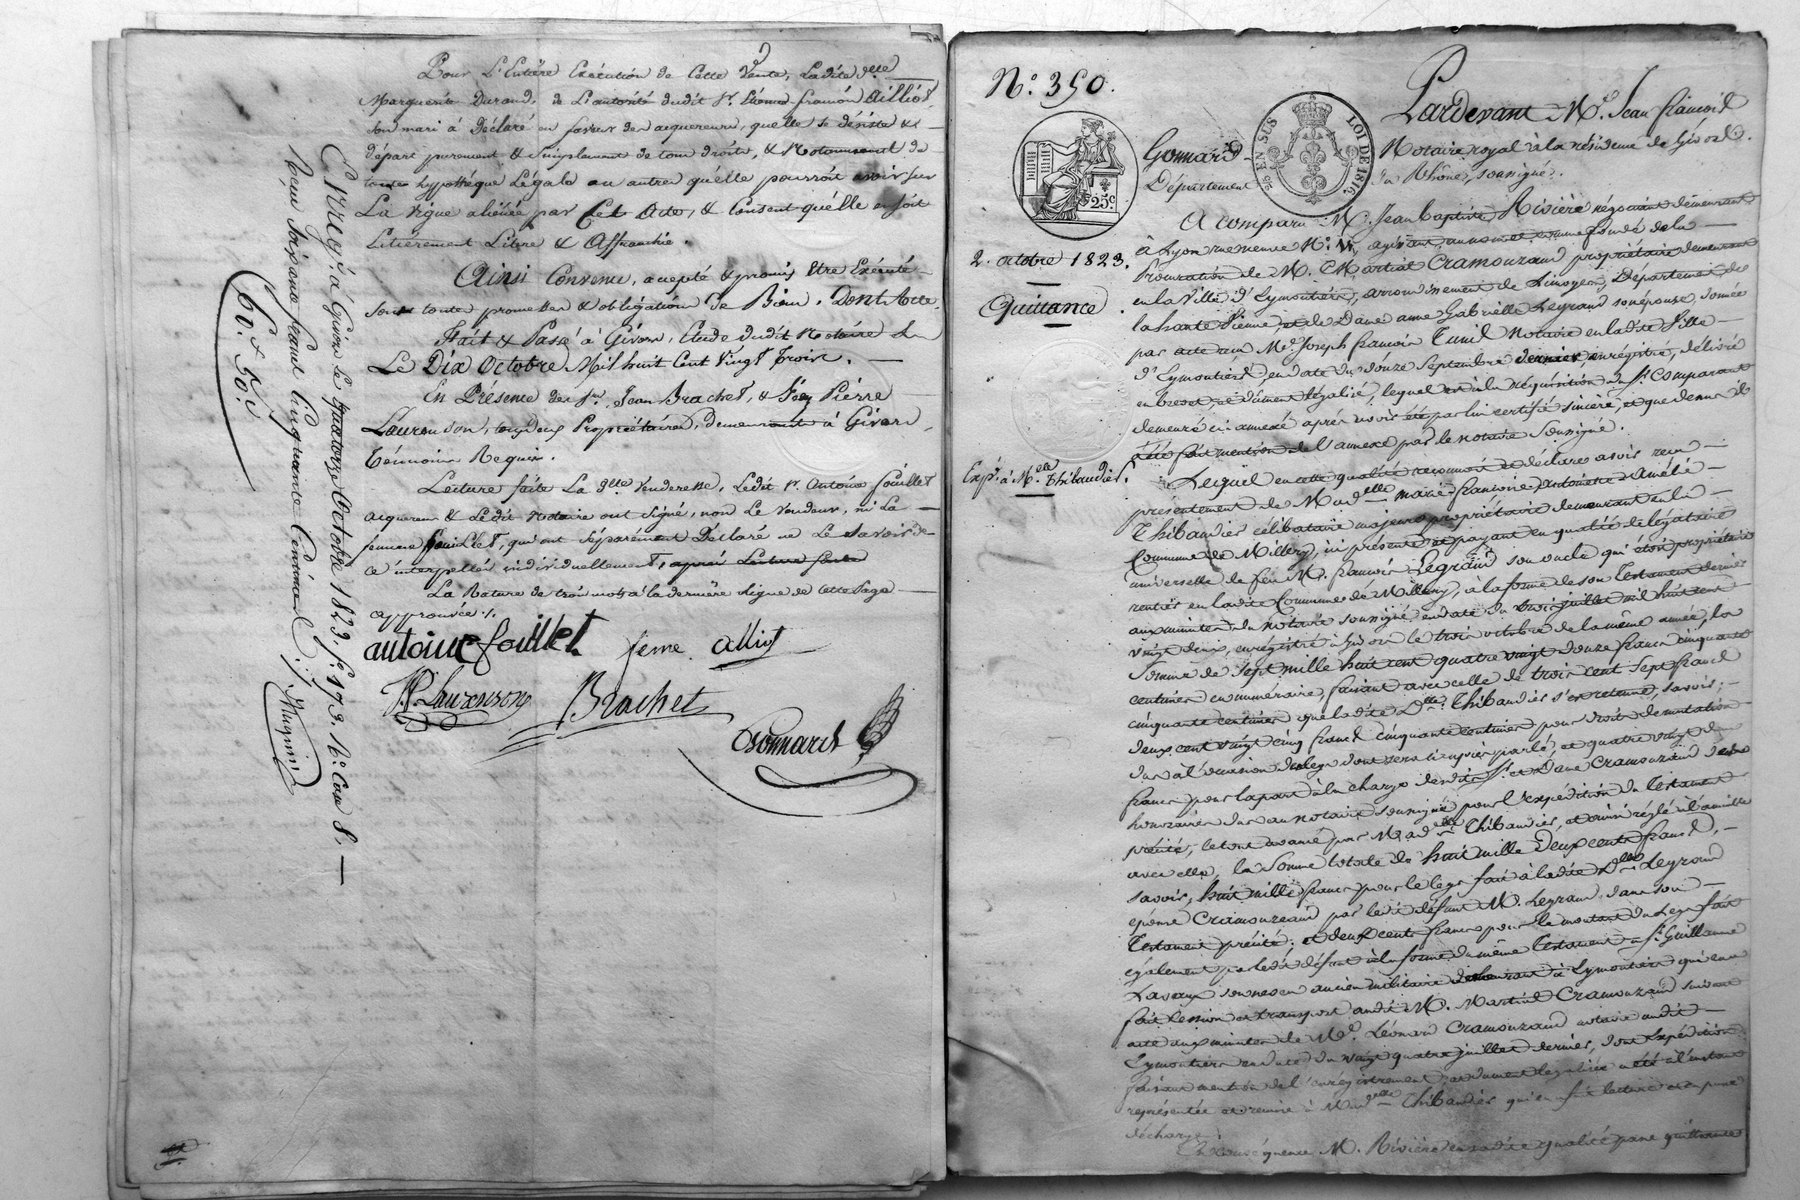 Pour L'Entière Exécution de Cette Vente, Ladite d.elle
Marguerite Durand, de L'autorité dudit Sr. Etienne françois Alliot,
Son mari à Déclaré en faveur des acquereurs, quelle se désiste &
départ purement & Simplement de tous droits, & Notamment de
toutes hypothèque Légale ou autres quélle pourroit avoir sur
La Vigne aliénée par Cet Acte, & Consent quélle en soit
Entièrement Libre & Affranchie.
Ainsi Convenu, accepté & promis Etre Exécuté
sous toutes promesses & obligations de Bien. Dont Acte
Fait & Passé à Givors, Etude dudit Notaire
Le Dix Octobre Mil huit Cent Vingt Trois.
En Présence des Srs. Jean Brachet, & Jean Pierre
Laurenson, tous deux Propriétaires, Demeurant à Givors,
Témoins Requis.
Lecture faite La d.elle Venderesse, Ledit Sr. Antoine fouillet
acquereur & Ledit Notaire ont Signé, non Le Vendeur, ni La
femme fouillet, qui ont Séparément Déclaré ne Le Savoir de
ce interpellés individuellement, après Lecture faite
La Rature de trois mots à la dernière Ligne de Cette Page
approuvée ./.
antoine fouillet feme alliot
JP. Laurenson Brachet
Gonnard
Enregé. à Givors le quatorze Octobre 1823. fo. 173. Ro. Case 8,
Reçu Soixante francs Cinquante Centimes ./.
60.f 50.c
N.o 350.
25c
EN SUS
LOI DE 1816
2. octobre 1823.
Quittance
Expé. à M.elle Thibaudier.
Pardevant M.e Jean François
Gonnard Notaire royal à la résidence de Givors
Département du Rhône, soussigné.
A comparu M. Jean Baptiste Rivière négociant demeurant
à Lyon rue neuve N.o agissant au nom et comme fondé de la
Procuration de M. Martial Cramouzaud propriétaire demeurant
en la Ville d'Eymoutiers, arrondissement de Limoges, Département de
la haute Vienne et de Dame anne Gabrielle Legrand son épouse, donnée
par acte reçu Me. Joseph francois Tunil Notaire en ladite Ville
d'Eymoutiers, en date du douze Septembre dernier enregistré, délivré
en brevet, et dûment légalisé, lequel est à la réquisition du Sr. Comparant
demeuré ci annexé après avoir été par lui certifié sincère, et que dessus il
a été fait mention de l'annexe par le notaire Soussigné.
Lequel en cette qualité reconnoit et déclare avoir reçu
présentement de Mad.elle marie françoise antoinette Amélie
Thibaudier célibataire majeure propriétaire demeurant en la
Commune de Millery, ici présente et payant en qualité de légataire
universelle de feu M. francois Legrand son oncle qui étoit propriétaire
rentier en ladite Commune de Millery, à la forme de son Testament dernier
aux minutes du notaire soussigné, en date du trois juillet mil huit cent
vingt deux, enregistré à Givors le trois octobre de la même année, la
Somme de sept mille huit cent quatre vingt douze francs cinquante
centimes en numéraire, faisant avec celle de trois cent sept francs
cinquante centimes que ladite D.elle Thibaudier s'est retenue, savoir;
deux cent vingt cinq francs cinquante centimes pour droits de mutation
dus à l'occasion du legs dont sera ci après parlé, et quatre vingt deux
francs pour la part à la charge desdits Sr. et Dame Cramouzaud dans les
honoraires dus au notaire soussigné pour l'expédition du Testament
précité, le tout avancé par Mad.elle Thibaudier, et ainsi réglé à l'amiable
avec elle, la Somme totale de huit mille deux cents francs,
savoir, huit mille francs pour le legs fait à ladite D.elle Legrand
épouse Cramouzaud par ledit défunt M. Legrand dans son
Testament précité; et deux cents francs pour le montant du Legs fait
également par ledit défunt à la forme du même Testament à Sr. Guillaume
Lavaux ancien militaire demeurant à Eymoutiers qui en a
fait cession et transport audit M. Martial Cramouzaud suivant
acte aux minutes de Me. Léonard Cramouzaud notaire audit
Eymoutiers en date du vingt quatre juillet dernier, dont Expédition
faisant mention de l'enregistrement et dument légalisée a été à l'instant
représentée et remise à Mad.elle Thibaudier qui en fait lecture et
décharge.
En conséquence M. Rivière en sadite qualité passe quittance